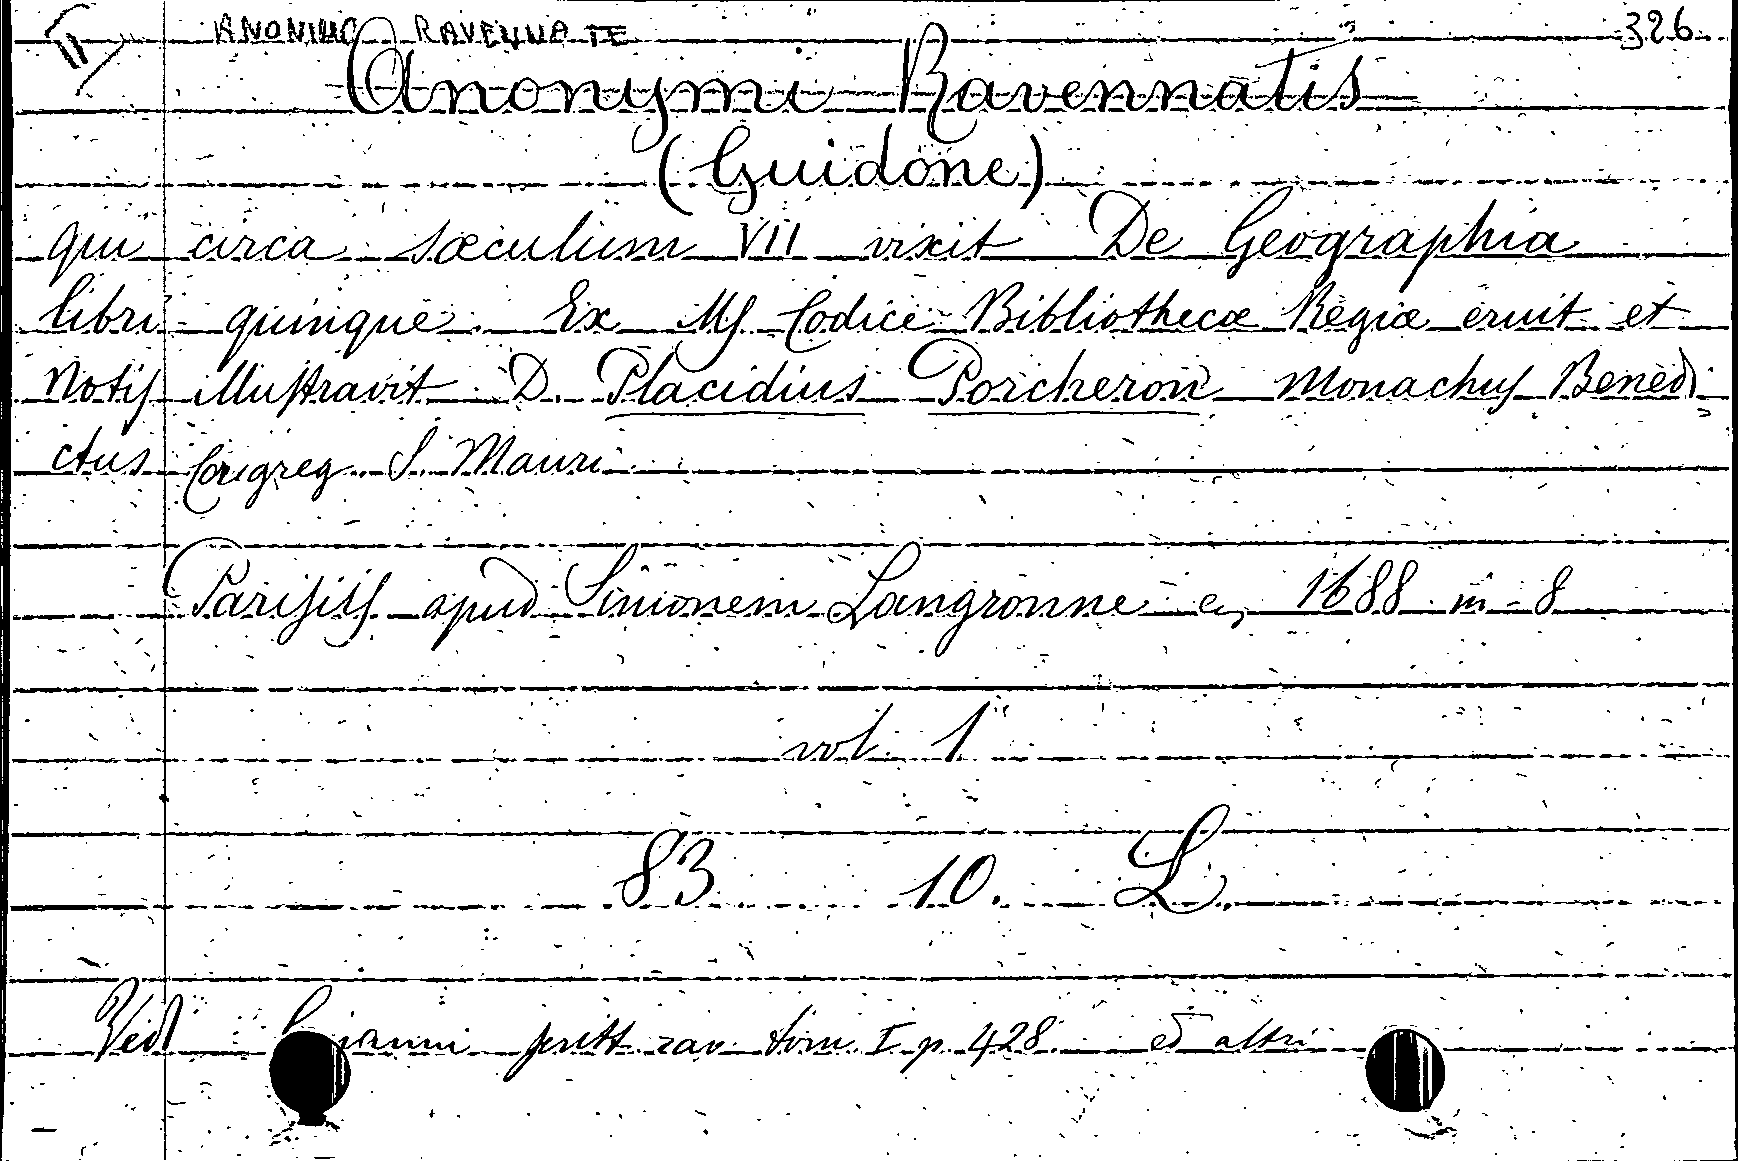 ANONIMO RAVENNATE 326
Anonymi Ravennatis
(Guidone)
qui circa sæculum VII vixit De Geographia
libri quinque. Ex Mſ Codice Bibliothecæ Regiæ eruit et
Notiſ illuſtravit D. Placidius Porcheron Monachuſ Benedi
ctus Congreg. S. Mauri
Pariſiiſ apud Simonem Langronne 1688 in-8
vol. 1
83 10. L.
Vedi scritt. rav. tom. I p. 428 ed altri